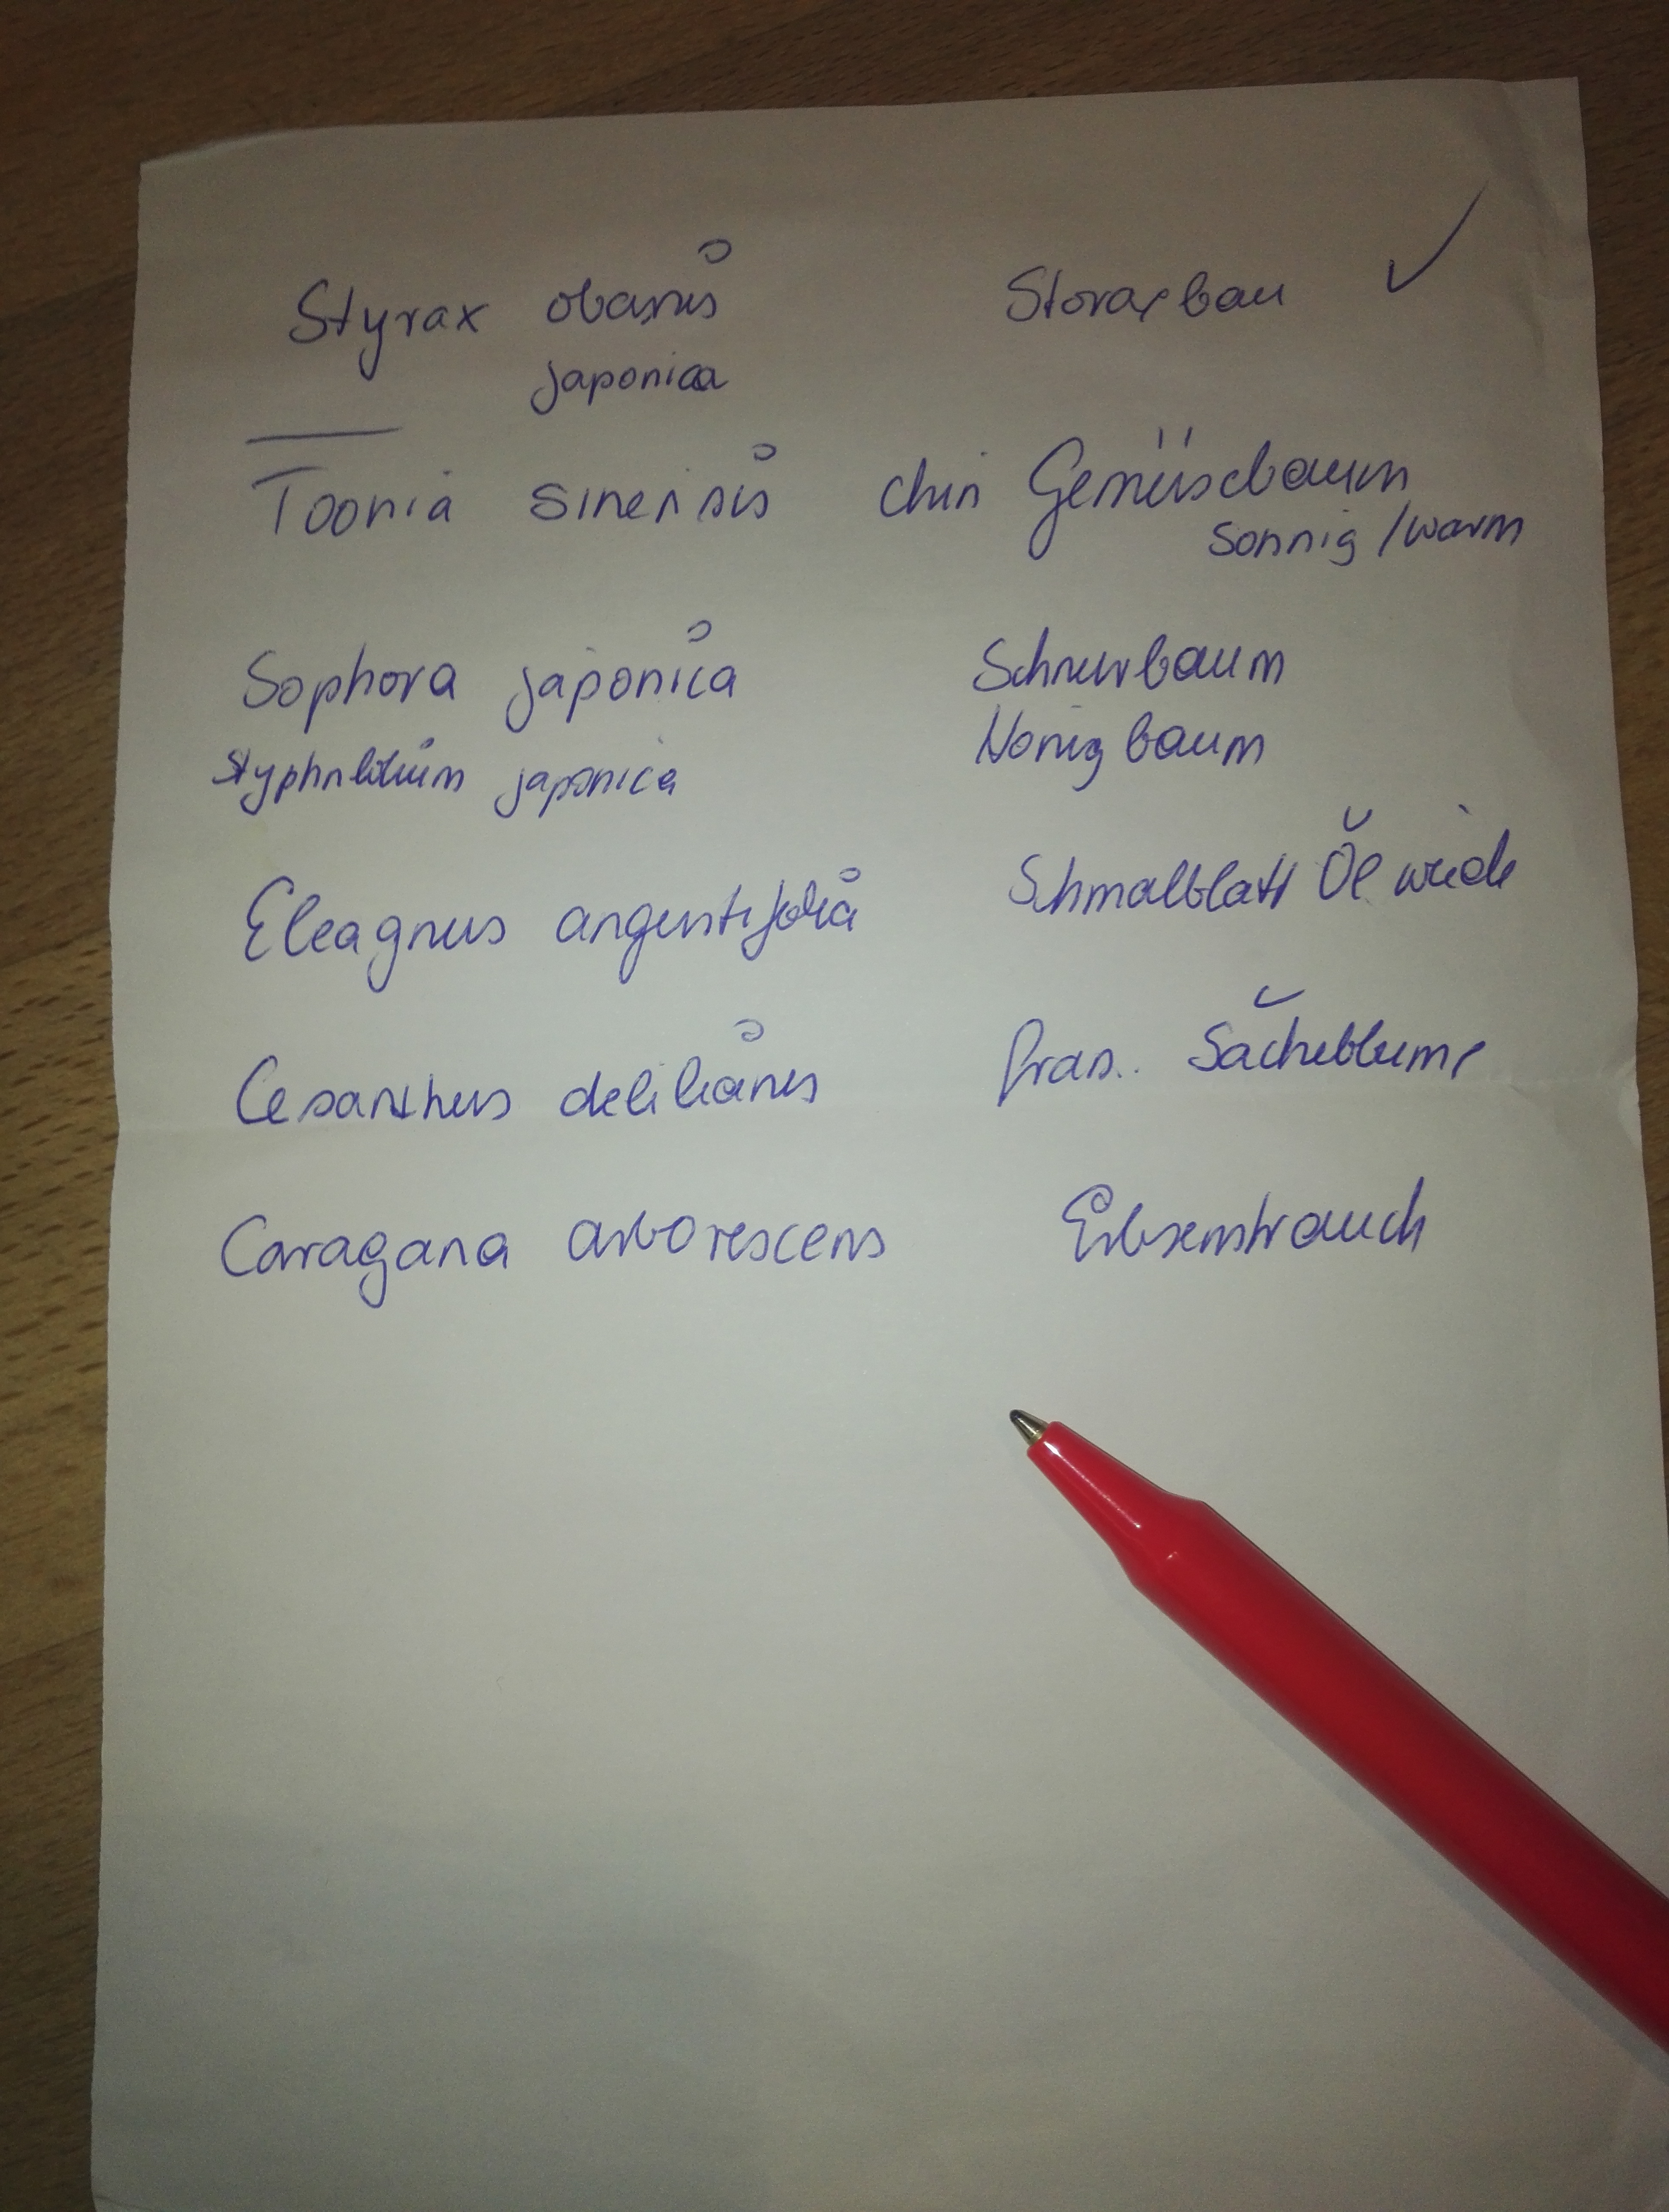 Styrax obanis Storaxbau ✓
japonica
Toonia sinensis chin Gemüsebaum
sonnig / warm
Sophora japonica Schnurbaum
Styphnlobium japonica Honigbaum
Eleagnus angustifolia Schmalblatt Ölweide
Cesanthus delilianus Säckeblume
Caragana arborescens Erbsenstrauch